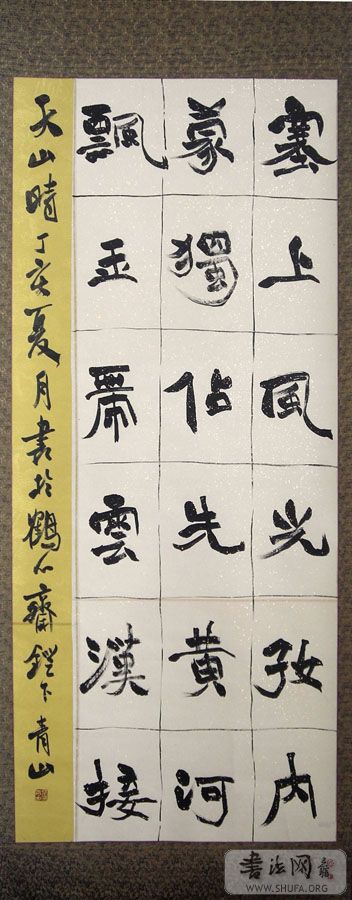 塞上風光好内
蒙獨佔先黄河
飄玉帶雲漢接
天山時丁亥夏月書於鶴齋鐙下青山
书法网
WWW.SHUFA.ORG